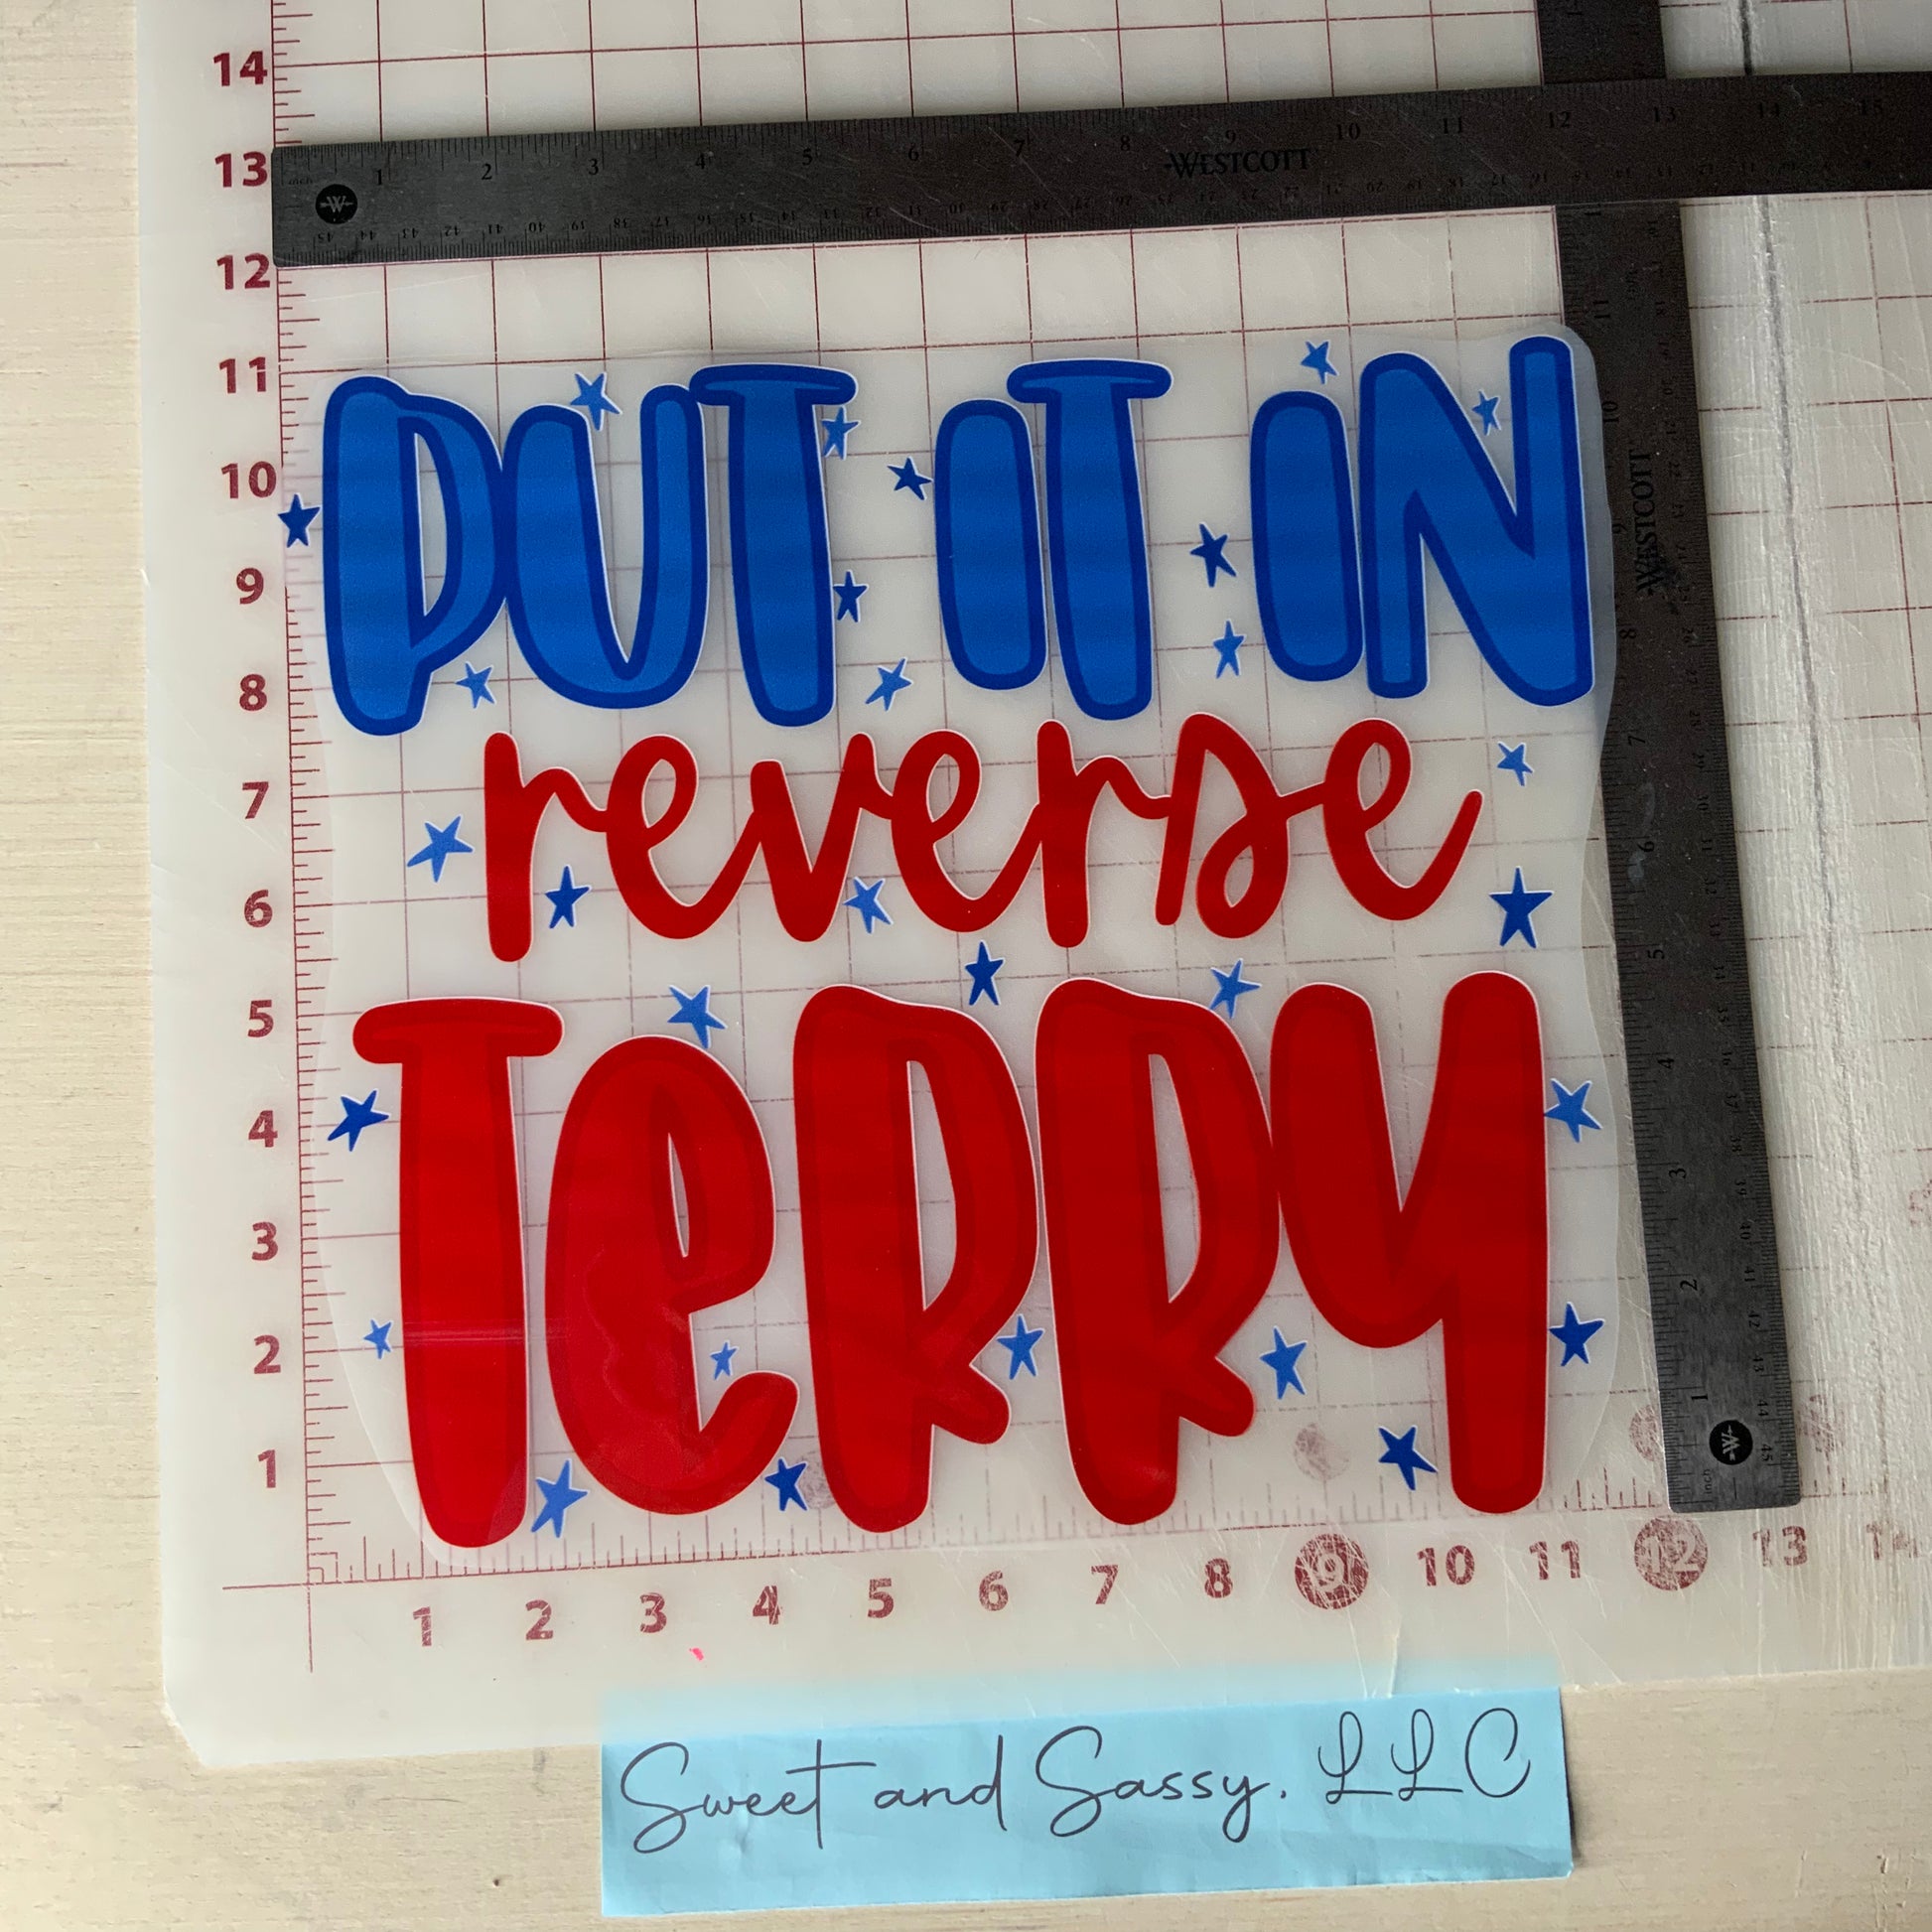 14
13
12
11
10
9
8
7
6
5
4
3
2
1
inch 1 2 3 4 5 6 7 8 9 10 11 12 13 14 15
WESTCOTT
WESTCOTT
PUT IT IN
reverse
TeRRY
1 2 3 4 5 6 7 8 9 10 11 12 13 14
Sweet and Sassy, LLC